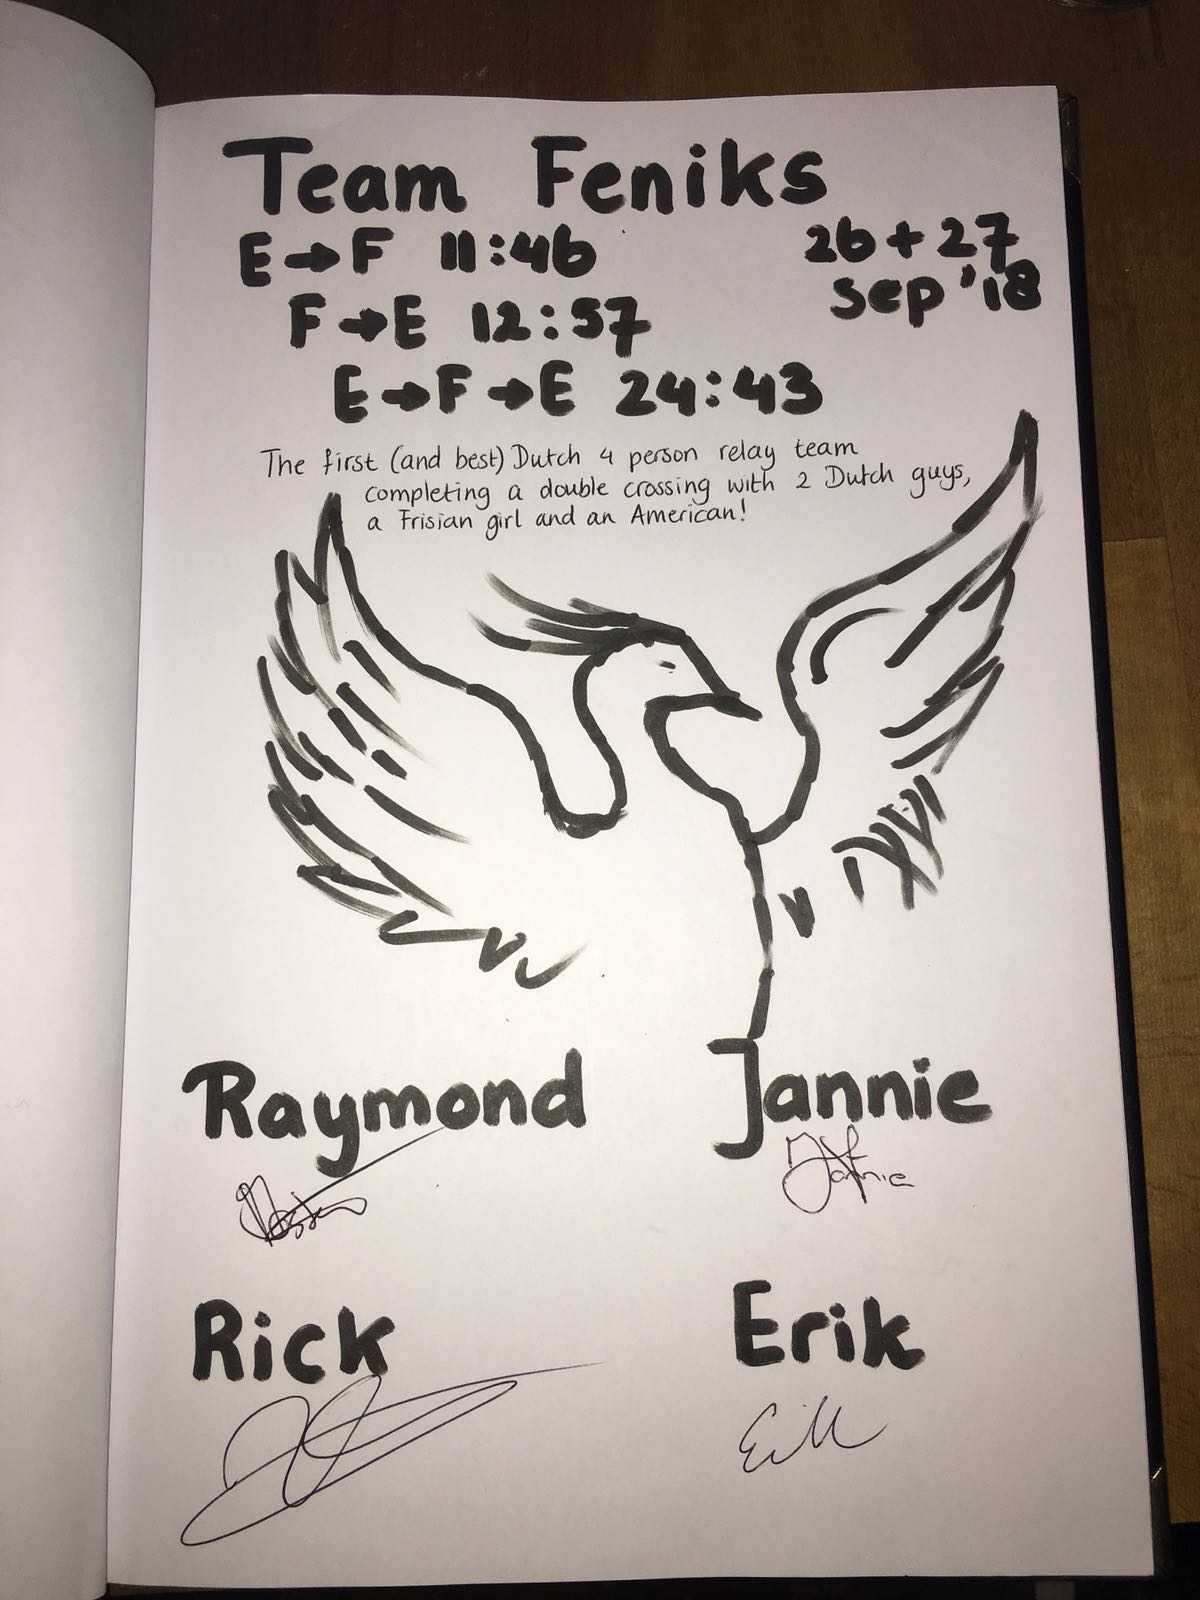 Team Feniks
E→F 11:46
26 + 27
sep '18
F→E 12:57
E→F→E 24:43
The first (and best) Dutch 4 person relay team
completing a double crossing with 2 Dutch guys,
a Frisian girl and an American!
Raymond
Jannie
Jannie
Rick
Erik